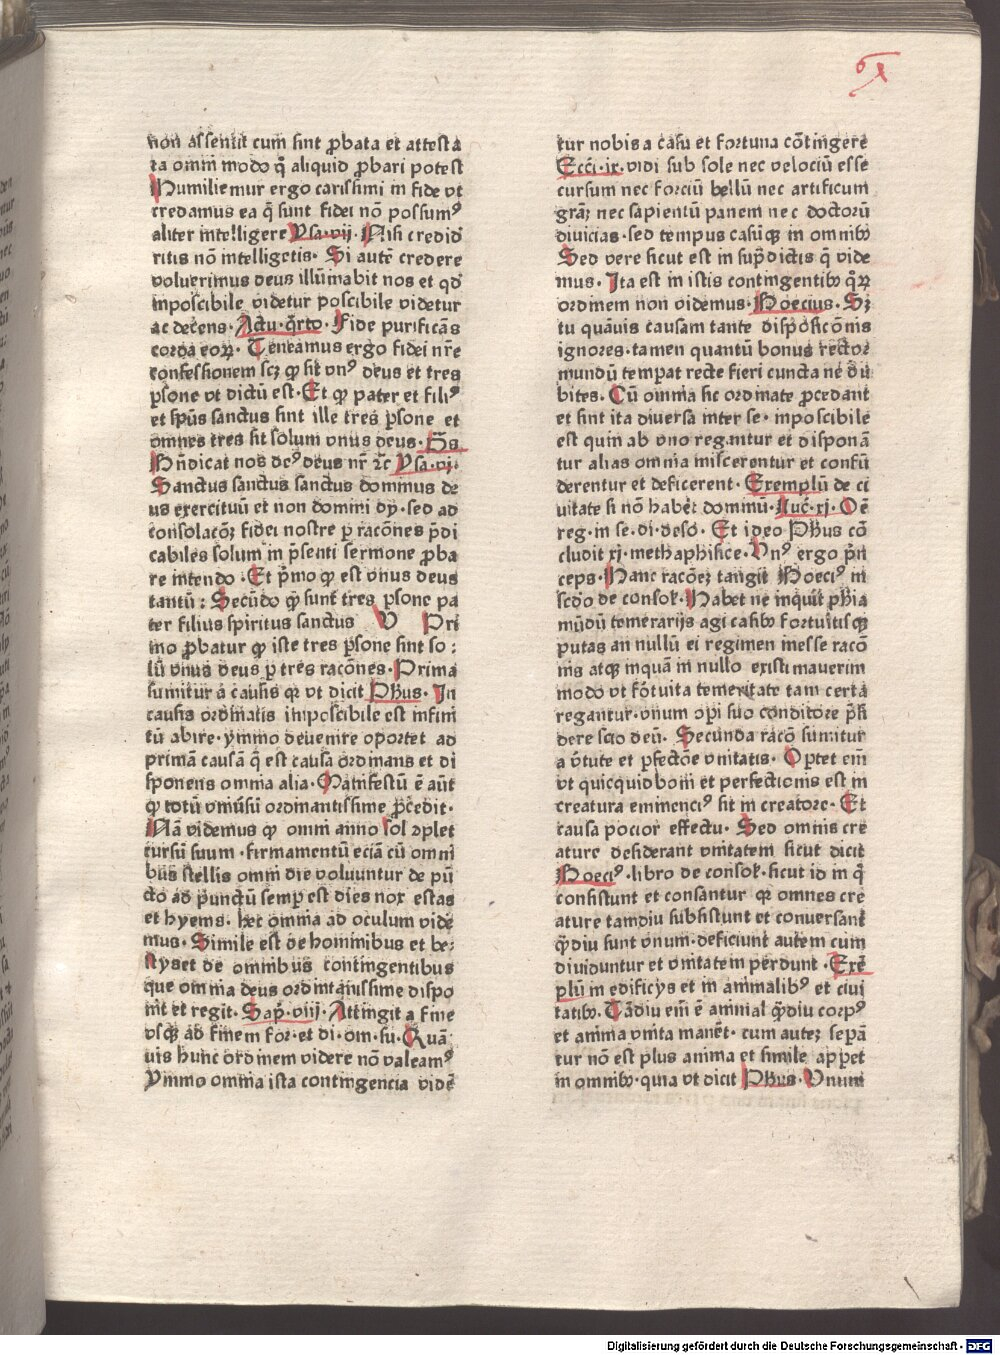 non assentit cum sint ꝓbata et attesta
ta omni modo q̄ aliquid ꝓbari potest
Humiliemur ergo carissimi in fide vt
credamus ea q̄ sunt fidei nō possumꝰ
aliter intelligere Ysa·vij· Nisi credid
ritis nō intelligetis· Si autē credere
voluerimus deus illūinabit nos et qd̕
inposcibile videtur poscibile videtur
ac decens· Actu·q̄rto· Fide purificās
corda eoꝝ· Teneamus ergo fidei nr̄e
confessionem scꝫ ꝙ sit vnꝰ deus et tres
ꝑsone vt dictū est· Et ꝙ pater et filiꝰ
et sp̄us sanctus sint ille tres ꝑsone et
omnes tres sit solum vnus deus·
Bn̄dicat nos deꝰ deus nr̄ ⁊c̄ Ysa·vj·
Sanctus sanctus sanctus dominus de
us exercituū et non domini dy̕· sed ad
consolacōꝫ fidei nostre ꝑ racōnes p̄di
cabiles solum in p̄senti sermone ꝓba
re intendo· Et p̄mo ꝙ est vnus deus
tantū: Secūdo ꝙ sunt tres ꝑsone pa
ter filius spiritus sanctus Pri
mo ꝓbatur ꝙ iste tres ꝑsone sint so:
lū vnus deus ꝑ tres racōnes· Prima
sumitur a causis qꝛ vt dicit Ph̄us· In
causis ordinatis inposcibile est infini
tū abire· ymmo deuenire oportet ad
primā causā q̄ est causa ordinans et di
sponens omnia alia· Manifestū ē aūt
ꝙ totū vniūsū ordinantissime ꝓcedit·
Nā videmus ꝙ omni anno sol ꝯplet
cursū suum· firmamentū eciā cū omni
bus stellis omni die voluuntur de pū
cto ad punctū semꝑ est dies nox estas
et hyems· hec omnia ad oculum vide
mus· Simile est de hominibus et be:
stys et de omnibus contingentibus
que omnia deus ordinantissime dispo
nit et regit· Sap̄·viij· Attingit a fine
vsqꝫ ad finem for·et di·om·su· Quā
uis hunc ordinem videre nō valeamꝰ
Ymmo omnia ista contingencia vidē
tur nobis a casu et fortuna cōtingere
Ecci·ix· vidi sub sole nec velociū esse
cursum nec forciū bellū nec artificum
grāꝫ nec sapientū panem nec doctorū
diuicias· sed tempus casūqꝫ in omnibꝫ
Sed vere sicut est in sup̄dictis q̄ vide
mus· Ita est in istis contingentibꝫ qꝛꝝ
ordinem non videmus· Boecius· Sꝫ
tu quāuis causam tante disposicōnis
ignores· tamen quantū bonus rector
mundū temꝑat recte fieri cuncta ne du
bites· Cū omnia sic ordinate ꝓcedant
et sint ita diuersa inter se· inposcibile
est quin ab vno regantur et disponā
tur alias omnia miscerentur et confū
derentur et deficerent· Exemplū de ci
uitate si nō habet dominū· Luc̄·xj· Oē
reg·in se·di·deso· Et ideo Ph̄us cō
cludit xj·methaphisice· Vnꝰ ergo p̄n
ceps· Hanc racōeꝫ tangit Boeciꝰ in
scd̕o de consol̕· Habet ne inquit ph̄ia
mūdū temerarijs agi casibꝫ fortuitisqꝫ
putas an nullū ei regimen inesse racō
nis atqꝫ inquā in nullo existimauerim
modo vt fōtuita temeritate tam certa
regantur· vnum oꝑi suo conditore p̄si
dere scio deū· Secunda racō sumitur
a v̕tute et ꝑfectōe vnitatis· Oꝑtet em̄
vt quicquid boni et perfectionis est in
creatura eminenciꝰ sit in creatore· Et
causa pocior effectu· Sed omnis cre
ature desiderant vnitatem sicut dicit
Boeciꝰ· libro de consol̕· sicut id in q̄
consistunt et consantur qꝛ omnes cre
ature tamdiu subsistunt et conuersant
q̄diu sunt vnum· deficiunt autem cum
diuiduntur et vnitatem perdunt· Exē
plū in edificys et in animalibꝰ et ciui
tatibꝫ· Tādiu em̄ ē animal q̄diu corpꝰ
et anima vnita manēt· cum auteꝫ seꝑā
tur nō est plus anima et simile apꝑet
in omnibꝫ· quia vt dicit Ph̄us· Vnum
Digitalisierung gefördert durch die Deutsche Forschungsgemeinschaft · DFG